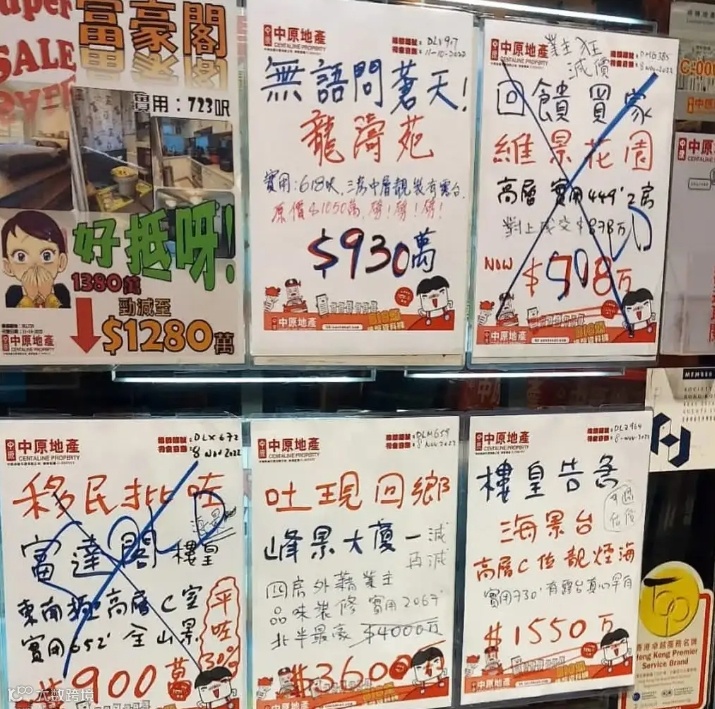 SALE
富豪閣
實用：723呎
好抵呀!
1380萬
勁減至
$1280萬
中原地產
CENTALINE PROPERTY
無語問蒼天!
龍濤苑
實用:618呎,三房中層靚裝有露台.
原價$1050萬,劈!劈!劈!
$930萬
中原地產
中原地產
業主狂
減價
回饋買家
維景花園
高層 實用449' 2房
對上成交$878萬
NOW $808萬
中原地產
中原地產
CENTALINE PROPERTY
DLX672
8 Nov 2022
移民批咗
海景
富達閣 樓皇
東南極高層C室
實用652' 全山景
平咗30%
$900萬
中原地產
中原地產
CENTALINE PROPERTY
DLM659
8 Nov 2022
吐現回鄉
峰景大廈一減
再減
四房外籍業主
品味裝修 實用2067'
北半最豪 $4000萬
$3600萬
中原地產
中原地產
CENTALINE PROPERTY
樓皇告急
海景台
高層C位靚煙海
實用730' 有露台真心平有
$1550萬
中原地產
香港卓越服務名牌
Hong Kong Premier
Service Brand
大數跨境